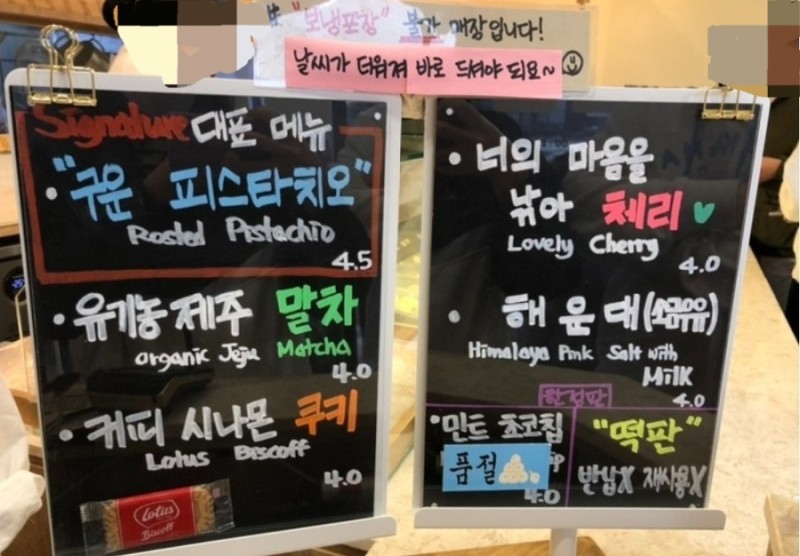 "보냉포장" 불가 매장입니다!
날씨가 더워져 바로 드셔야 되요~
Signature 대표 메뉴
· "구운 피스타치오"
Rosted Pistachio
4.5
· 유기농 제주 말차
organic Jeju Matcha
4.0
· 커피 시나몬 쿠키
Lotus Biscoff
4.0
Lotus
Biscoff
· 너의 마음을
낚아 체리
Lovely Cherry
4.0
· 해운대(소금우유)
Himalaya Pink Salt with
Milk
4.0
한정판
· 민트 초코칩
품절
4.0
"떡판"
반납X 재사용X